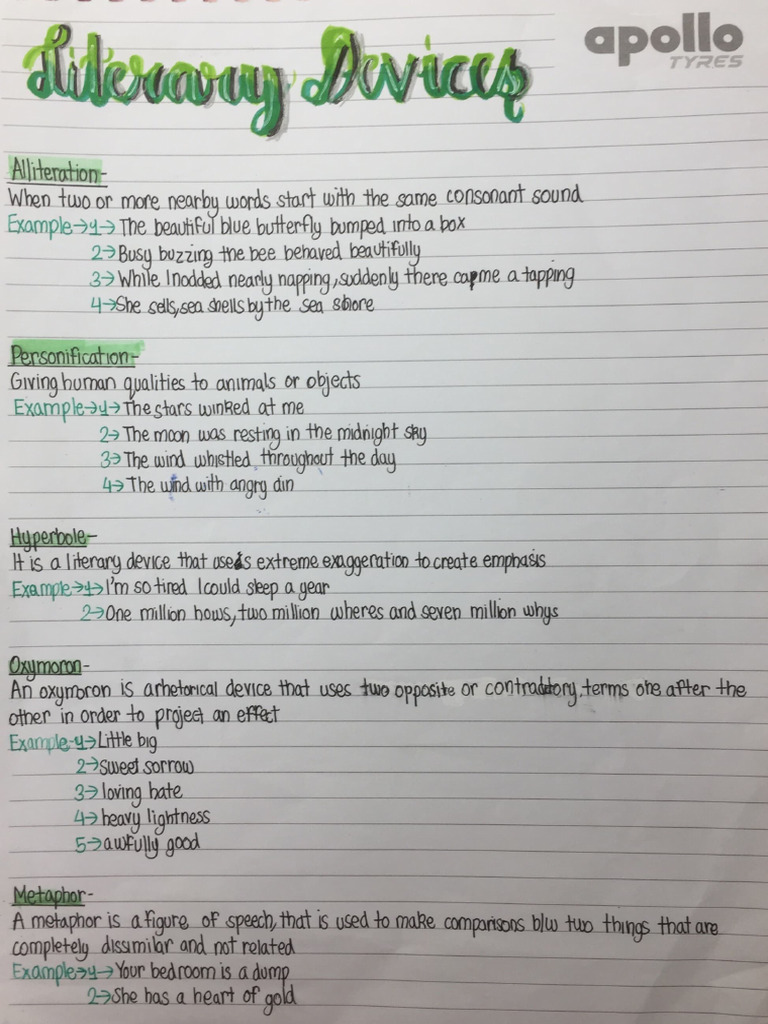 Literary Devices
apollo
TYRES
Alliteration-
When two or more nearby words start with the same consonant sound
Example→1→The beautiful blue butterfly bumped into a box
2→Busy buzzing the bee behaved beautifully
3→While I nodded nearly napping, suddenly there came a tapping
4→She sells, sea shells by the sea shore
Personification-
Giving human qualities to animals or objects
Example→1→The stars winked at me
2→The moon was resting in the midnight sky
3→The wind whistled throughout the day
4→The wind with angry din
Hyperbole-
It is a literary device that uses extreme exaggeration to create emphasis
Example→1→I'm so tired I could sleep a year
2→One million hows, two million wheres and seven million whys
Oxymoron-
An oxymoron is a rhetorical device that uses two opposite or contradictory, terms one after the
other in order to project an effect
Example-1→Little big
2→sweet sorrow
3→loving hate
4→heavy lightness
5→awfully good
Metaphor-
A metaphor is a figure of speech, that is used to make comparisons b/w two things that are
completely dissimilar and not related
Example→1→Your bedroom is a dump
2→She has a heart of gold